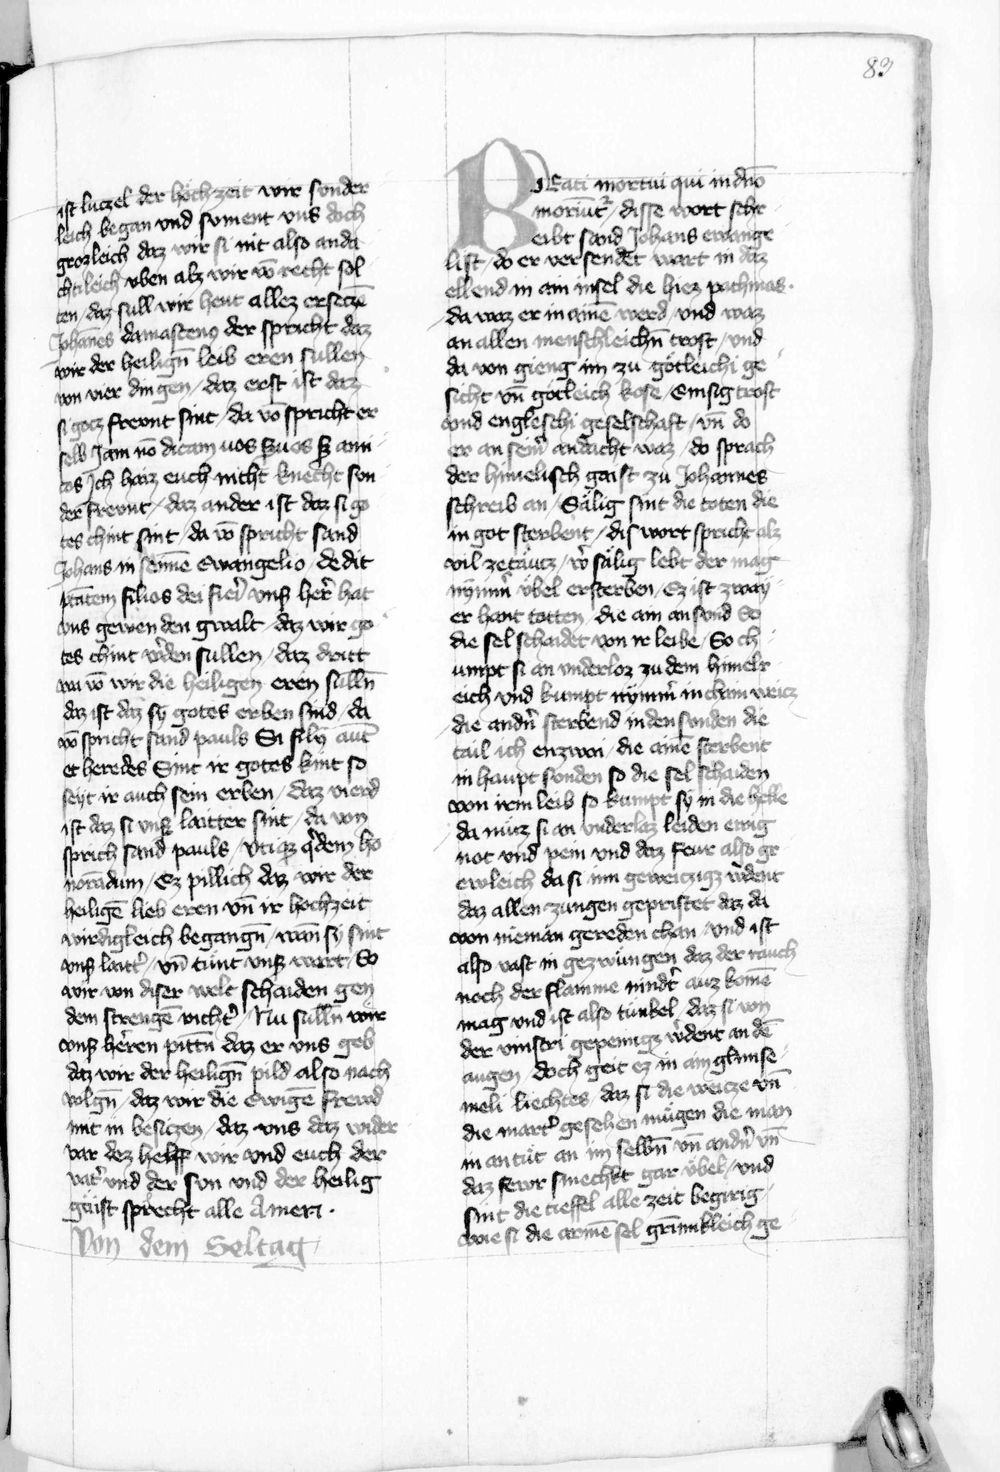 83
ist luczel der hochzeit wir sunder
leich began und sument uns doch
grozleich daz wir si nit also anda
chtileich uben alz wir vō recht sol
ten / daz sull wir heut allez erseczē
Johānes damascenq der spricht daz
wir der heiligñ leib eren sullen
von vier dingen / daz erst ist daz
si gotz frewnt sint / da vō spricht er
selb Jam nō dicam uos suos sz ami
cos Ich haiz euch nicht knecht sun
der frewnt / daz ander ist daz si go
tes chint sint / da vō spricht sand
Johans in seinē Ewangelio / dedit
ptātem filios dei fieri unsz herr hat
uns gewen den gwalt / daz wir go
tes chint w̾den sullen / daz dritt
wa vō wir die heiligen eren sullñ
daz ist daz sy gotes erben sind / da
vō spricht sand pauls Si filij aut̄
et heredes Sint ir gotes kint so
seyt ir auch sein erben / daz vierd
ist daz si unsz laitter sint / da von
sprich sand pauls / utiqz q̄dem ho
norādum / Ez pillich daz wir der
heiligē lieb eren uñ ir hochzeit
wirdigleich begangñ / wañ sy sint
unsz lait̾ / uñ tunt unsz wart / So
wir von diser welt schaiden gen
dem strengē richt̾ / Nu sullñ wir
unsz herren pittñ daz er uns geb
daz wir der heiligñ pild also nach
volgñ / daz wir die Ewigē frewd
mit in besiczen / daz uns daz wider
var dez helff wir und euch der
vat̾ und der sun und der heilig
gaist sprecht alle Amen ·
Von dem Seltag
BEati mortui qui in dn̄o
moriūt̄ / disse wort schr
eibt sand Johans ewange
list / do er versendet wart in daz
ellend in ain insel die hiez pathmas ·
da waz er in ainē werd / und waz
an allen menschleichñ trost / und
da von gieng im zu gotleichi ge
sicht uñ gotleich kose / Ensig trost
und engleschi geselschaft / uñ do
er an sein̾ andacht waz / do sprach
der himelisch gaist zu Johannes
schreib an / Sälig sint die toten die
in got sterbent / dis wort spricht alz
vil zetäutz / w̾ sälig lebt der mag
nym̄ ubel ersterben / Ez ist zway
er hant totten / die ain an sund So
die sel schaidet von ir leibe / So ch
umpt si an underloz zu dem himelr
eich und kumpt nym̄ in chain weicz
die and̾n sterbend in den sunden die
tail ich enzwai / die ainē sterbent
in haupt sunden so die sel schaiden
von irm leib so kumpt sy in die helle
da muz si an underlaz leiden ewig
not und pein und daz feur also gr
ewleich da si inn geweiczigt w̾dent
daz allen zungen gepristet daz da
von nieman gereden chan / und ist
also vast in gezwungen daz der rauch
noch der flamme nind̾t auz komē
mag und ist also tunkel / daz si von
der vinstri gepeinigt w̾dent an dē
augen / doch geit ez in ain glanse
meli liechtes / daz si die weicze uñ
die mart̾ gesehen mügen die man
in antut an im selbñ uñ and̾n uñ
daz fewr smechkt gar übel / und
sint die tieffel alle zeit begirig
wie si die armē sel grimkleich ge